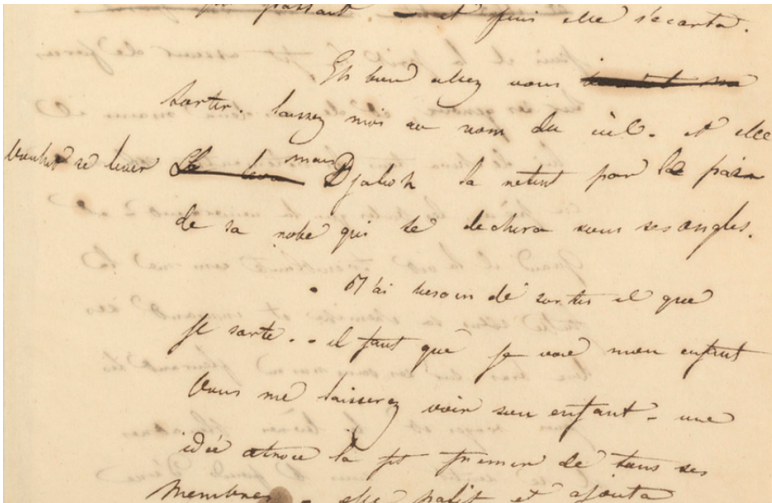 passant - et puis elle s'ecarta.
Eh bien allez vous
sortir. laissez moi au nom du ciel - et elle
voulut se lever mais Djalioh la retint par le pan
de sa robe qui se dechira sous ses ongles.
- J'ai besoin de sortir il faut que
je sorte. - il faut que je voie mon enfant
vous me laisserez voir mon enfant - une
idée atroce la fit fremir de tous ses
membres - elle palit et ajouta